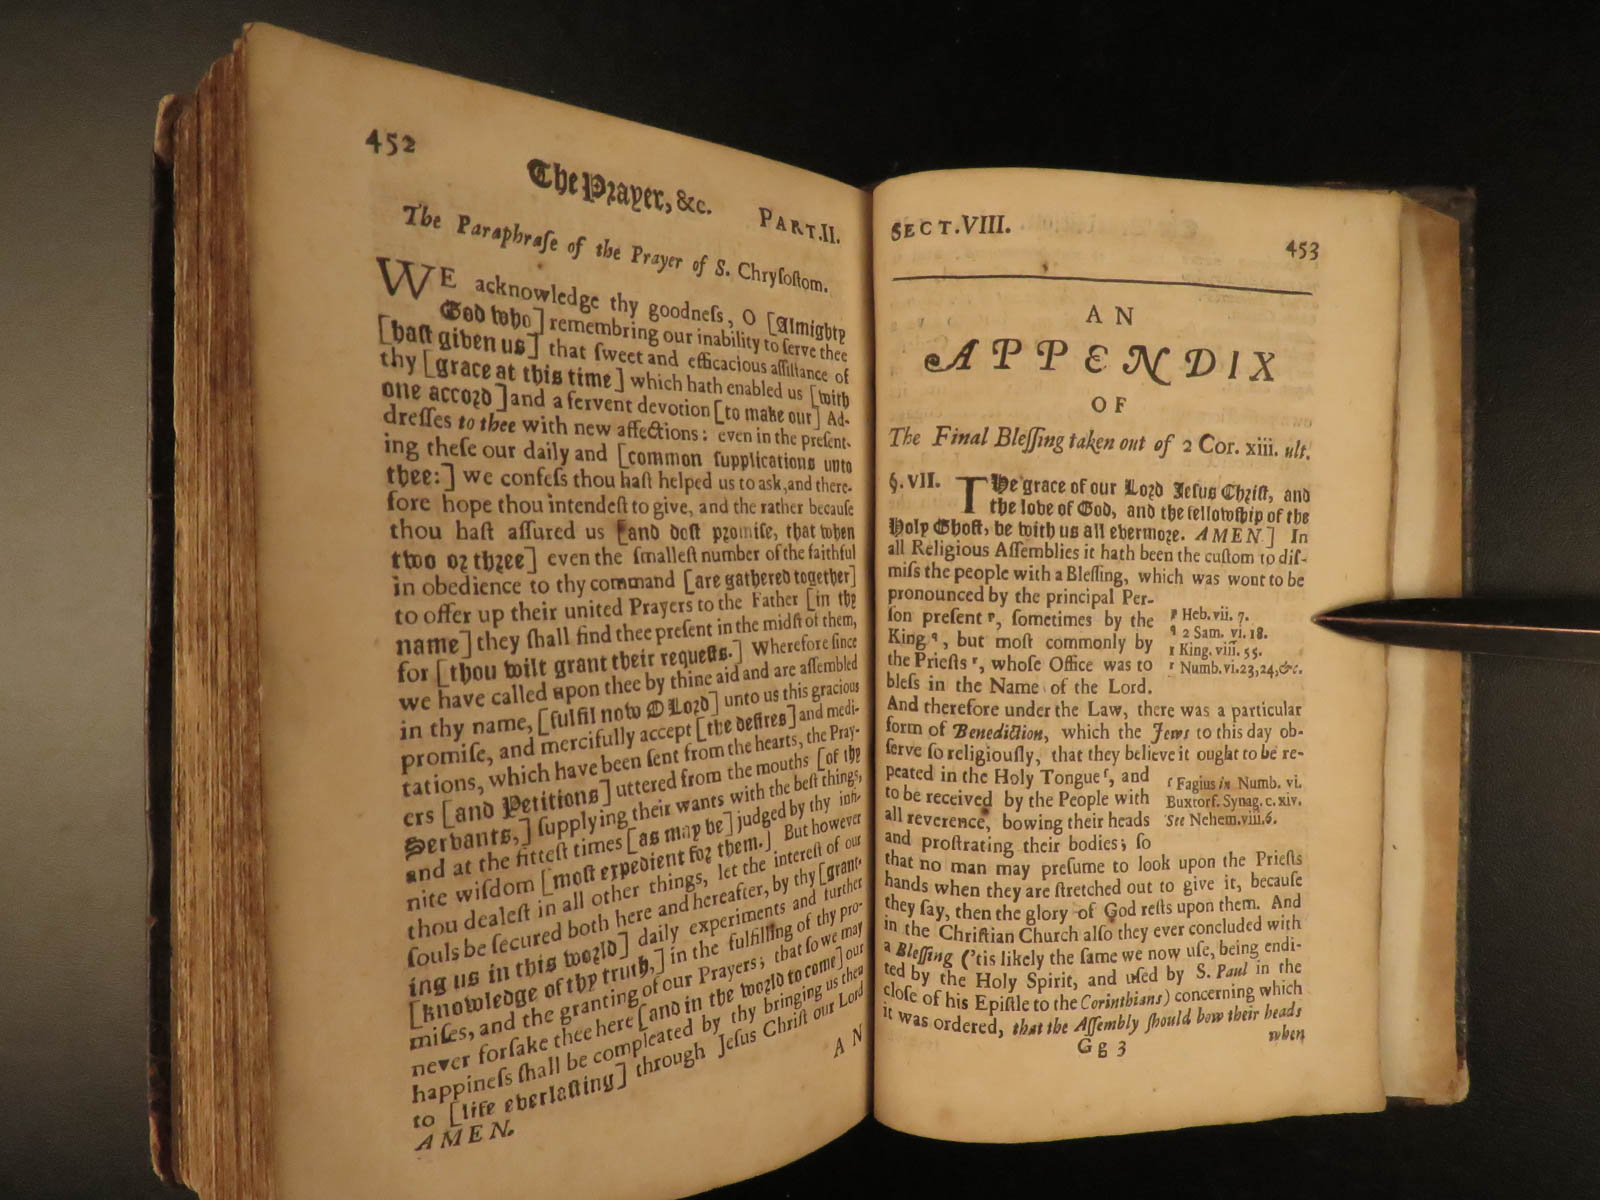 452
The Prayer, &c. PART.II.
The Paraphraſe of the Prayer of S. Chryſoſtom.
WE acknowledge thy goodneſs, O [Almighty
God who] remembring our inability to ſerve thee
[haſt given us] that ſweet and efficacious aſſiſtance of
thy [grace at this time] which hath enabled us [with
one accord] and a fervent devotion [to make our] Ad-
dreſſes to thee with new affections: even in the preſent-
ing theſe our daily and [common ſupplications unto
thee:] we confeſs thou haſt helped us to ask, and there-
fore hope thou intendeſt to give, and the rather becauſe
thou haſt aſſured us [and doſt promiſe, that when
two or three] even the ſmalleſt number of the faithful
in obedience to thy command [are gathered together]
to offer up their united Prayers to the Father [in thy
name] they ſhall find thee preſent in the midſt of them,
for [thou wilt grant their requeſts.] Wherefore ſince
we have called upon thee by thine aid and are aſſembled
in thy name, [fulfil now O Lord] unto us this gracious
promiſe, and mercifully accept [the deſires] and medi-
tations, which have been ſent from the hearts, the Pray-
ers [and Petitions] uttered from the mouths [of thy
Servants,] ſupplying their wants with the beſt things,
and at the fitteſt times [as may be] judged by thy infi-
nite wiſdom [moſt expedient for them.] But however
thou dealeſt in all other things, let the intereſt of our
ſouls be ſecured both here and hereafter, by thy [grant-
ing us in this world] daily experiments and further
[knowledge of thy truth,] in the fulfilling of thy pro-
miſes, and the granting of our Prayers; that ſo we may
never forſake thee here [and in the world to come] our
happineſs ſhall be compleated by thy bringing us then
to [life everlaſting] through Jeſus Chriſt our Lord
AMEN.
AN
SECT.VIII. 453
AN
APPENDIX
OF
The Final Bleſſing taken out of 2 Cor. xiii. ult.
§. VII. THe grace of our Lord Jeſus Chriſt, and
the love of God, and the fellowſhip of the
Holy Ghoſt, be with us all evermore. AMEN.] In
all Religious Aſſemblies it hath been the cuſtom to diſ-
miſs the people with a Bleſſing, which was wont to be
pronounced by the principal Per-
ſon preſent ᵖ, ſometimes by the
King ᑫ, but moſt commonly by
the Prieſts ʳ, whoſe Office was to
bleſs in the Name of the Lord.
ᵖ Heb. vii. 7.
ᑫ 2 Sam. vi. 18.
1 King. viii. 55.
ʳ Numb. vi. 23, 24, &c.
And therefore under the Law, there was a particular
form of Benediction, which the Jews to this day ob-
ſerve ſo religiouſly, that they believe it ought to be re-
peated in the Holy Tongue ſ, and
to be received by the People with
all reverence, bowing their heads
and proſtrating their bodies; ſo
ſ Fagius in Numb. vi.
Buxtorf. Synag. c. xiv.
See Nehem. viii. 6.
that no man may preſume to look upon the Prieſts
hands when they are ſtretched out to give it, becauſe
they ſay, then the glory of God reſts upon them. And
in the Chriſtian Church alſo they ever concluded with
a Bleſſing ('tis likely the ſame we now uſe, being endi-
ted by the Holy Spirit, and uſed by S. Paul in the
cloſe of his Epiſtle to the Corinthians) concerning which
it was ordered, that the Aſſembly ſhould bow their heads
Gg 3 when